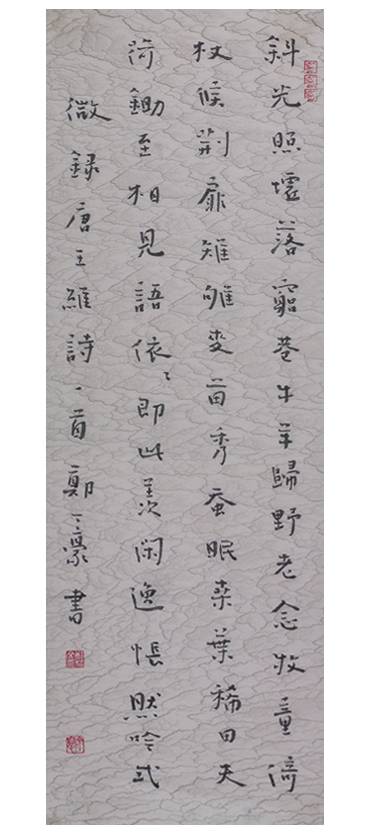 斜光照墟落窮巷牛羊歸野老念牧童倚
杖候荊扉雉雊麥苗秀蚕眠桑葉稀田夫
荷鋤至相見語依〻即此羨閑逸悵然吟式
微録唐王維詩一首鄭豪書